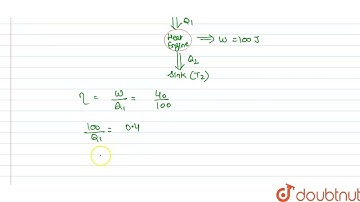 Q1
Heat
Engine
⇒ W = 100 J
Q2
Sink (T2)
η = W/Q1 = 40/100
100/Q1 = 0.4
doubtnut